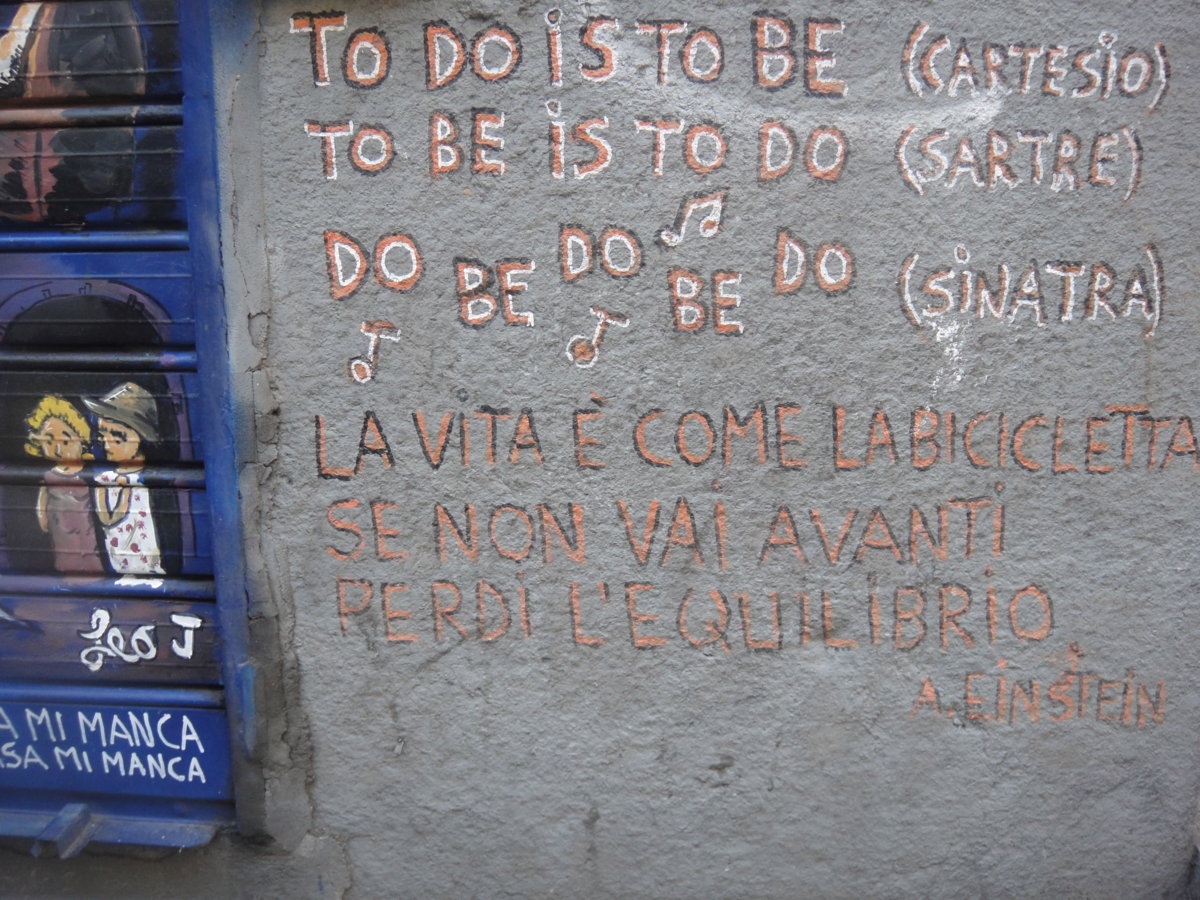 TO DO iS TO BE (CARTESiO)
TO BE iS TO DO (SARTRE)
DO BE DO BE DO (SiNATRA)
LA ViTA È COME LA BICICLETTA
SE NON VAi AVANTi
PERDi L'EQUILiBRiO
A. EiNSTEiN
MI MANCA
MI MANCA